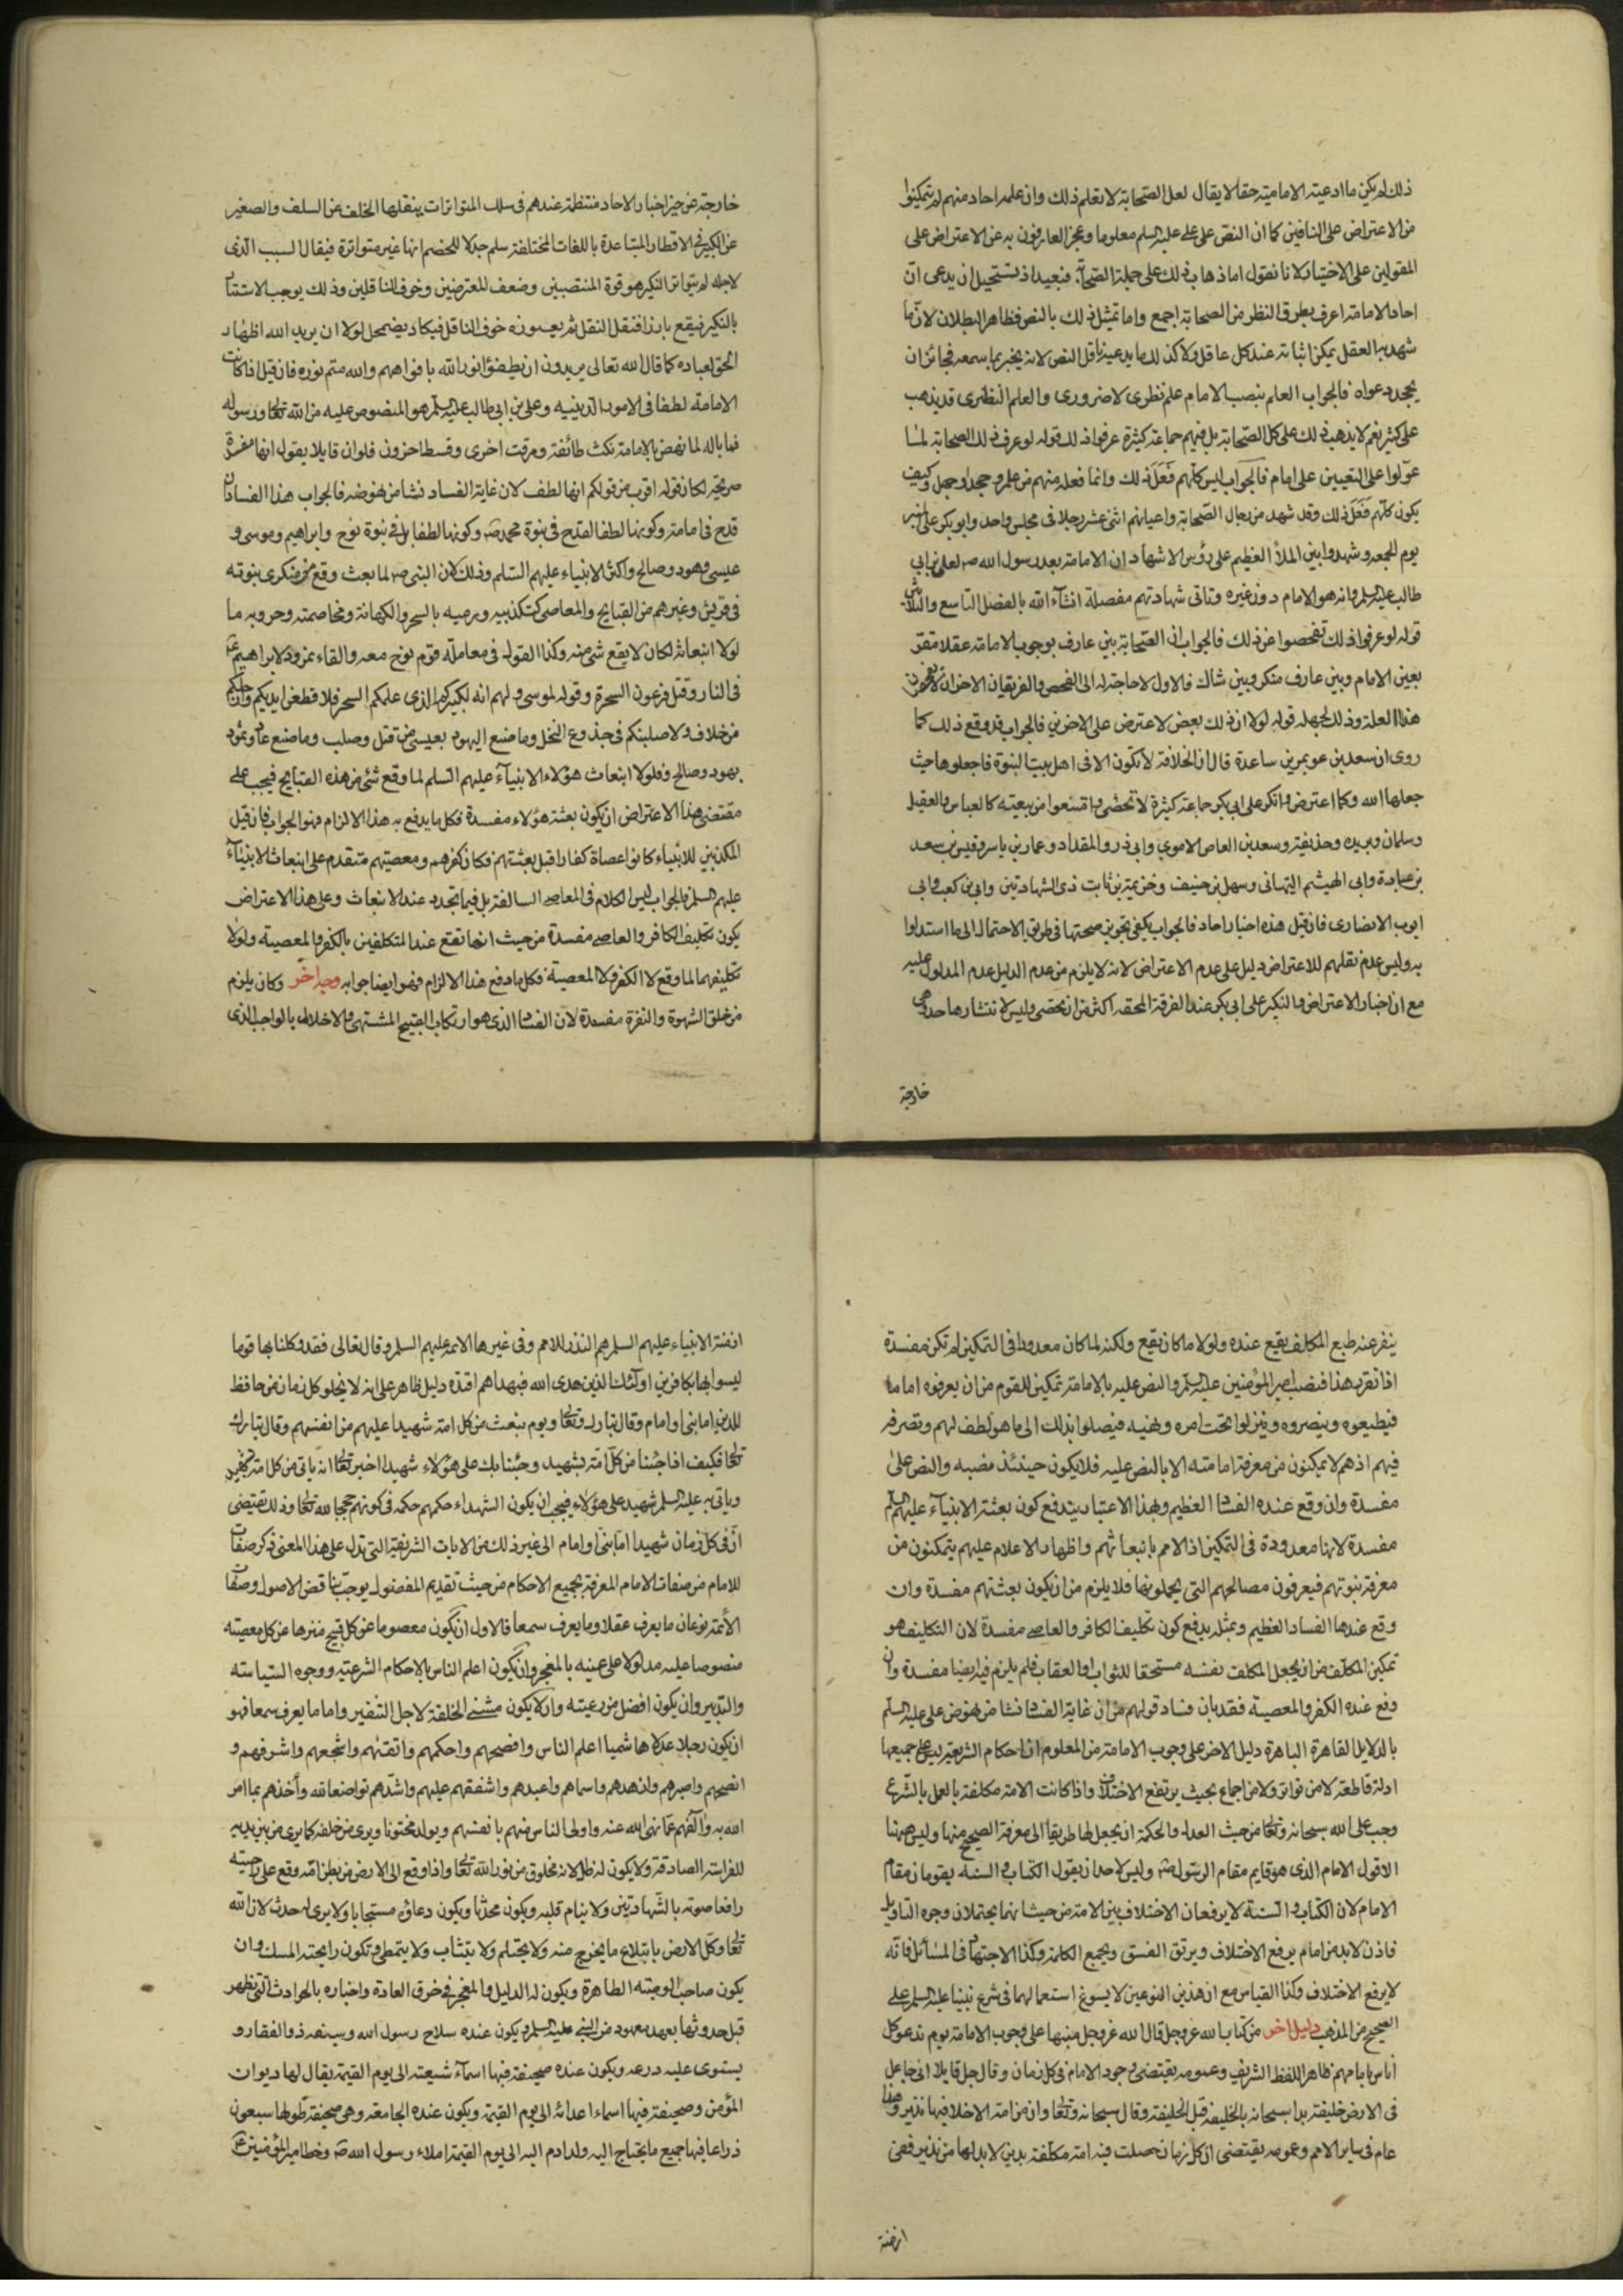 ذلك لم يكن ما ادعيته الامامية حقا لا يقال لعل الصحابة لا تعلم ذلك وان علمه احاد منهم لم يتمكنوا
من الاعتراض على النافين كما ان النص على علي عليه السلم معلوما وعجز العارفون به عن الاعتراض على
القولين على الاختيار لانا نقول اما ذهاب ذلك على جملة الصحابة فبعيد اذ يستحيل ان يدعى ان
احاد الامامية اعرف بطرق النظر من الصحابة اجمع واما تمثيل ذلك بالنص فظاهر البطلان لان ما
شهد به العقل يمكن اثباته عند كل عاقل ولا كذلك ما يدعيه ناقل النص لانه يخبر بما سمعه فجائز ان
يجحد دعواه فالجواب العلم بنصب الامام علم نظرى لا ضرورى والعلم النظرى قد يذهب
على كثير نعم لا يذهب ذلك على كل الصحابة بل فيهم جماعة كثيرة عرفوا ذلك قوله لو عرف ذلك الصحابة لما
عولوا على التعيين على امام فالجواب ليس كلهم فعل ذلك وانما فعله منهم من علم وجحد او جهل وكيف
يكون كلهم فعل ذلك وقد شهد من رجال الصحابة واعيانهم اثنى عشر رجلا فى مجلس واحد وابو بكر على المنبر
يوم الجمعه وشهدوا بين الملأ العظيم على رؤس الاشهاد ان الامامة بعد رسول الله صم لعلى بن ابى
طالب عليه السلم وانه هو الامام دون غيره وتاتى شهادتهم مفصلة انشاء الله بالفصل التاسع والثلاثين
قوله لو عرفوا ذلك تفحصوا عن ذلك فالجواب ان الصحابة بين عارف بوجوب الامامة عقلا مقر
بعين الامام وبين عارف منكر وبين شاك فالاول لا حاجة له الى الفحص والفريقان الاخران
هذا العلة وذلك لجهله قوله لولا ان ذلك بعض لاعترض على الاخرين فالجواب قد وقع ذلك كما
روى ان سعد بن عويمر بن ساعدة قال ان الخلافة لا تكون الا فى اهل بيت النبوة فاجعلوها حيث
جعلها الله وكما اعترض وانكر على ابى بكر جماعة كثيرة لا تحصى وامتنعوا من بيعته كالعباس والعقيل
وسلمان وبريده وحذيفة وسعد بن العاص الاموى وابى ذر والمقداد وعمار بن ياسر وقيس بن سعد
بن عبادة وابى الهيثم التيهانى وسهل بن حنيف وخزيمة بن ثابت ذى الشهادتين وابى بن كعب وابى
ايوب الانصارى فان قيل هذه اخبار احاد فالجواب يكفى تجويز صحتها فى طريق الاحتمال الى ما استدلوا
به وليس عدم نقلهم للاعتراض دليل على عدم الاعتراض لانه لا يلزم من عدم الدليل عدم المدلول عليه
مع ان اخبار الاعتراض والنكير على ابى بكر عند الفرقة المحقه اكثر من ان يحصى وليس لانتشارها حد وهى
خارجة
خارجة عن حيز اخبار الاحاد منتظمة عندهم فى سلك المتواترات ينقلها الخلف عن السلف والصغير
عن الكبير فى الاقطار المتباعدة باللغات المختلفة سلم جدلا للخصم انها غير متواترة فيقال السبب الذى
لاجله لم يتواتر النكير هو قوة المنتصبين وضعف المعترضين وخوف الناقلين وذلك يوجب الاستتار
بالنكير فيقع بارزا فنقل النقل ثم خوف الناقل فيكاد يضمحل لولا ان يريد الله اظهار
الحق لعباده كما قال الله تعالى يريدون ان يطفئوا نور الله بافواههم والله متم نوره فان قيل اذا كانت
الامامة لطفا فى الامور الدينيه وعلى بن ابى طالب عليه السلم هو المنصوص عليه من الله تعالى ورسوله
فما باله لما نهض بالامامة نكث طائفة ومرقت اخرى وقسط اخرون فلو ان قايلا يقول انها مفسدة
صريحة لكان قوله اقرب من قولكم انها لطف لان غاية الفساد نشا من نهوضه فالجواب هذا الفساد ان
قدح فى امامته وكونها لطفا لقدح فى نبوة محمد صم وكونها لطفا بل فى نبوة نوح وابراهيم وموسى و
عيسى وهود وصالح واكثر الانبياء عليهم السلم وذلك لان النبى صم لما بعث وقع من منكرى نبوته
فى قريش وغيرهم من القبايح والمعاصى كتكذيبه ورميه بالسحر والكهانة ومخاصمته وحروبه ما
لولا انبعاثه لكان لا يقع شئ منه وكذا القول فى معاملة قوم نوح معه والقاء نمرود لابراهيم عم
فى النار وقتل فرعون السحرة وقوله لموسى ولهم انه لكبيركم الذى علمكم السحر فلاقطعن ايديكم وارجلكم
من خلاف ولاصلبنكم فى جذوع النخل وما صنع اليهود بعيسى من قتل وصلب وما صنع عاد وثمود
بهود وصالح فلولا انبعاث هؤلاء الانبياء عليهم السلم لما وقع شئ من هذه القبايح فيجب على
مقتضى هذا الاعتراض ان يكون بعثة هؤلاء مفسدة فكل ما يدفع به هذا الالزام فهو الجواب فان قيل
المكذبين للانبياء كانوا عصاة كفارا قبل بعثتهم فكان كفرهم ومعصيتهم متقدم على انبعاث الانبياء
عليهم السلم فالجواب ليس الكلام فى المعاصى السالفة بل فيما تجدد عند الانبعاث وعلى هذا الاعتراض
يكون تكليف الكافر والعاصى مفسدة من حيث انها تقع عند المتكلفين بالكفر والمعصية ولولا
تكليفهما لما وقع لا الكفر ولا المعصية فكل ما دفع هذا الالزام فهو ايضا جوابه وجه اخر وكان يلزم
من خلق الشهوة والنفرة مفسدة لان الفساد الذى هو ارتكاب القبيح المشتهى والاخلال بالواجب الذى
ينفر عنه طبع المكلف يقع عنده ولولا ما كان يقع ولكنه لما كان معدودا فى التمكين لم تكن مفسدة
اذا تقرر هذا فنصب امير المؤمنين عليه السلم والنص عليه بالامامة تمكين للقوم من ان يعرفوه اماما
فيطيعوه وينصروه وينزلوا تحت امره ونهيه فيصلوا بذلك الى ما هو لطف لهم وتصرفه
فيهم اذ هم لا يمكنون من معرفة امامته الا بالنص عليه فلا يكون حينئذ نصبه والنص على
مفسدة وان وقع عنده الفساد العظيم وبهذا الاعتبار يندفع كون بعثة الانبياء عليهم السلم
مفسدة لانها معدودة فى التمكين اذ الامم بانبعاثهم واظهار الاعلام عليهم يتمكنون من
معرفة نبوتهم فيعرفون مصالحهم التى يحملونها فلا يلزم من ان يكون بعثتهم مفسدة وان
وقع عندها الفساد العظيم وبمثله يدفع كون تكليف الكافر والعاصى مفسدة لان التكليف هو
تمكين المكلف من ان يجعل المكلف نفسه مستحقا للثواب او العقاب فلم يلزم فيه ايضا مفسدة وان
وقع عنده الكفر والمعصية فقد بان فساد قولهم من ان غاية الفساد نشا من نهوض على عليه السلم
بالدلايل القاهرة الباهرة دليل الاخر على وجوب الامامة من المعلوم ان احكام الشريعة ليس على جميعها
ادلة قاطعة لا من تواتر ولا من اجماع بحيث يرتفع الاختلاف واذا كانت الامة مكلفة بالعمل بالشرع
وجب على الله سبحانه وتعالى من حيث العدل والحكمة ان يجعل لها طريقا الى معرفة الصحيح منها وليس ههنا
الا قول الامام الذى هو قايم مقام الرسول صم وليس لاحد ان يقول الكتاب والسنة يقومان مقام
الامام لان الكتاب والسنة لا يرفعان الاختلاف بين الامة من حيث انهما يحتملان وجوه التاويل
فاذن لابد من امام يرفع الاختلاف ويرتق الفسق ويجمع الكلمة وكذا الاجتهاد فى المسائل فانه
لا يرفع الاختلاف وكذا القياس مع ان هذين النوعين لا يسوغ استعمالهما فى شرع نبينا عليه السلم على
الصحيح من المذهب دليل اخر من كتاب الله عز وجل قال الله عز وجل منبها على وجوب الامامة يوم ندعو كل
اناس بامامهم ظاهر اللفظ الشريف وعمومه يقتضى وجود الامام فى كل زمان وقال جل قايلا انى جاعل
فى الارض خليفة بدا سبحانه بالخليفه قبل الخليقة وقال سبحانه وتعالى وان من امة الا خلا فيها نذير وهذا
عام فى ساير الامم وعمومه يقتضى ان كل زمان حصلت فيه امة مكلفة بدين لابد لها من نذير ففى
ازمنة
ازمنة الانبياء عليهم السلم هم النذر للامم وفى غيرها الائمة عليهم السلم وقال تعالى فقد وكلنا بها قوما
ليسوا بها بكافرين اولئك الذين هدى الله فبهداهم اقتده دليل ظاهر على انه لا يخلو كل زمان من حافظ
للدين اما نبى او امام وقال تبارك وتعالى ويوم نبعث من كل امة شهيدا عليهم من انفسهم وقال تبارك
تعالى فكيف اذا جئنا من كل امة بشهيد وجئنا بك على هؤلاء شهيدا اخبر تعالى انه ياتى من كل امة بشهيد
وياتى به عليه السلم شهيد على هؤلاء فيجب ان يكون الشهداء حكمهم حكمه فى كونهم حججا لله تعالى وذلك يقتضى
ان فى كل زمان شهيدا اما نبى او امام الى غير ذلك من الايات الشريفة التى تدل على هذا المعنى ذكر صفات
للامام من صفات الامام المعرفة بجميع الاحكام من حيث تقديم المفضول يوجب تناقض الاصول وصفات
الائمة نوعان ما يعرف عقلا وما يعرف سمعا فالاول ان يكون معصوما عن كل قبيح منزها عن كل معصية
منصوصا عليه مدلولا على عينه بالمعجز وان يكون اعلم الناس بالاحكام الشرعية ووجوه السياسة
والتدبير وان يكون افضل من رعيته وان لا يكون مشنى الخلقة لاجل التنفير واما ما يعرف سمعا فهو
ان يكون رجلا عدلا هاشميا اعلم الناس وافصحهم واحكمهم واتقنهم واشجعهم واشرفهم و
انصحهم واصبرهم وازهدهم واسماهم واعبدهم واشفقهم عليهم واشدهم تواضعا لله وآخذهم بما امر
الله به واكفهم عما نهى الله عنه واولى الناس منهم بانفسهم ويولد مختونا ويرى من خلفه كما يرى من بين يديه
للفراسة الصادقة ولا يكون له ظل لانه مخلوق من نور الله تعالى واذا وقع الى الارض من بطن امه وقع على راحتيه
رافعا صوته بالشهادتين ولا ينام قلبه ويكون محدثا ويكون دعاؤه مستجابا ولا يرى له حدث لان الله
تعالى وكل الارض بابتلاع ما يخرج منه ولا يحتلم ولا يتثاب ولا يتمطى وتكون رايحته المسك وان
يكون صاحب الوصية الطاهرة ويكون له الدليل والمعجز فى خرق العادة واخباره بالحوادث التى تظهر
قبل حدوثها بعهد معهود من النبى عليه السلم ويكون عنده سلاح رسول الله وسيفه ذو الفقار و
يستوى عليه درعه ويكون عنده صحيفة فيها اسماء شيعته الى يوم القيمة يقال لها ديوان
المؤمن وصحيفة فيها اسماء اعدائه الى يوم القيمة ويكون عنده الجامعة وهى صحيفة طولها سبعون
ذراعا فيها جميع ما يحتاج اليه ولد ادم اليه الى يوم القيمة املاء رسول الله صم وخط امير المؤمنين عم